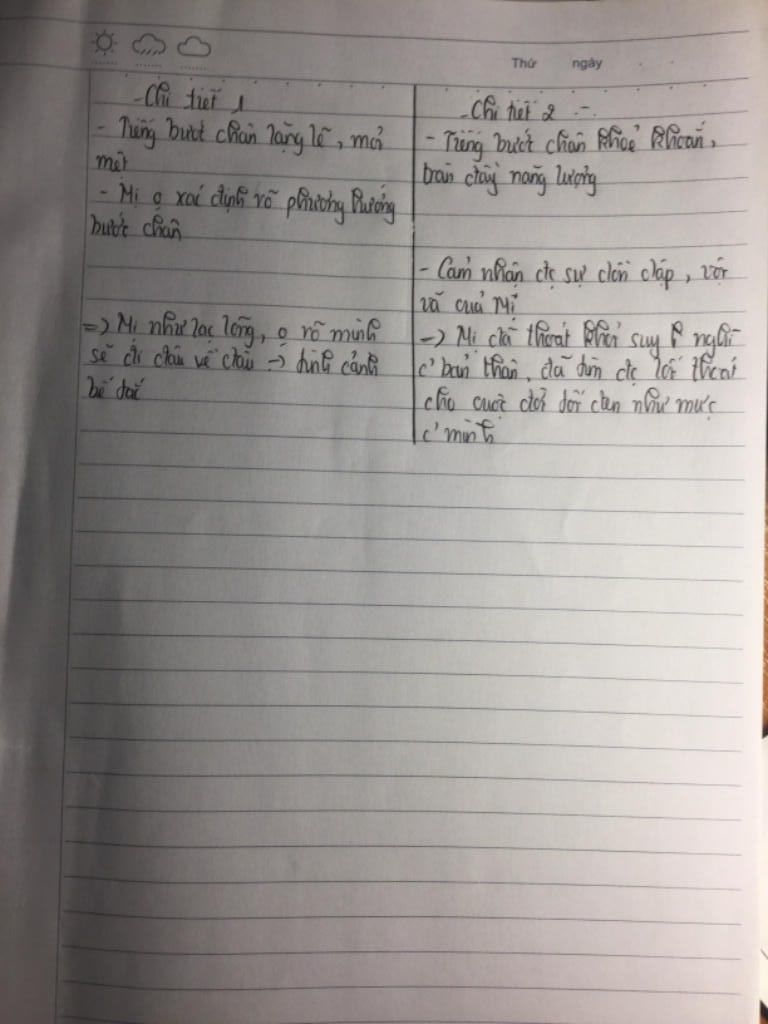 Thứ ngày
- Chi tiết 1
- Tiếng bước chân lặng lẽ, mỏi
mệt
- Mị o xác định rõ phương hướng
bước chân
=> Mị như lạc lõng, o rõ mình
sẽ đi đâu về đâu -> tình cảnh
bế tắc
- Chi tiết 2
- Tiếng bước chân khoẻ khoắn,
tràn đầy năng lượng
- Cảm nhận đc sự dồn dập, vội
vã của Mị
-> Mị đã thoát khỏi suy nghĩ
c' bản thân, đã tìm đc lối thoát
cho cuộc đời tối đen như mực
c' mình